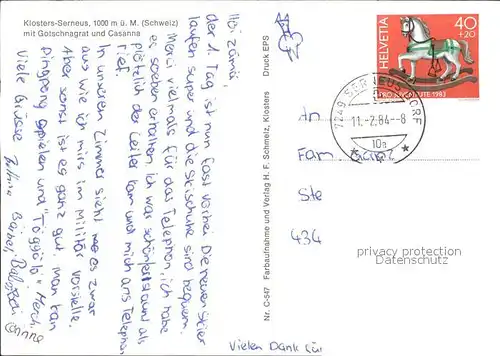 Klosters-Serneus, 1000 m ü. M. (Schweiz)
mit Gotschnagrat und Casanna
Hoi zämä,
der 1. Tag ist nun fast vorbei. Die neuen Skier
laufen super und die Skischuhe sind bequem.
Merci vielmals für das Telephon, ich habe
es soeben erhalten. Ich war schön erstaunt als
plötzlich der Leiter kam und mich ans Telephon
rief.
In unserem Zimmer sieht es zwar
aus wie ich mirs im Militär vorstelle.
Aber sonst ist es ganz gut. Man kann
Pingpong spielen und "Töggele". Merci
Viele Grüsse
Bärbel
Vielen Dank für
Nr. C-547 Farbaufnahme und Verlag H. F. Schmelz, Klosters Druck EPS
HELVETIA
40
+20
PRO JUVENTUTE 1983
7249 SERNEUS DORF
11.-2.84-8
10a
An
Fam
Ste
434
privacy protection
Datenschutz